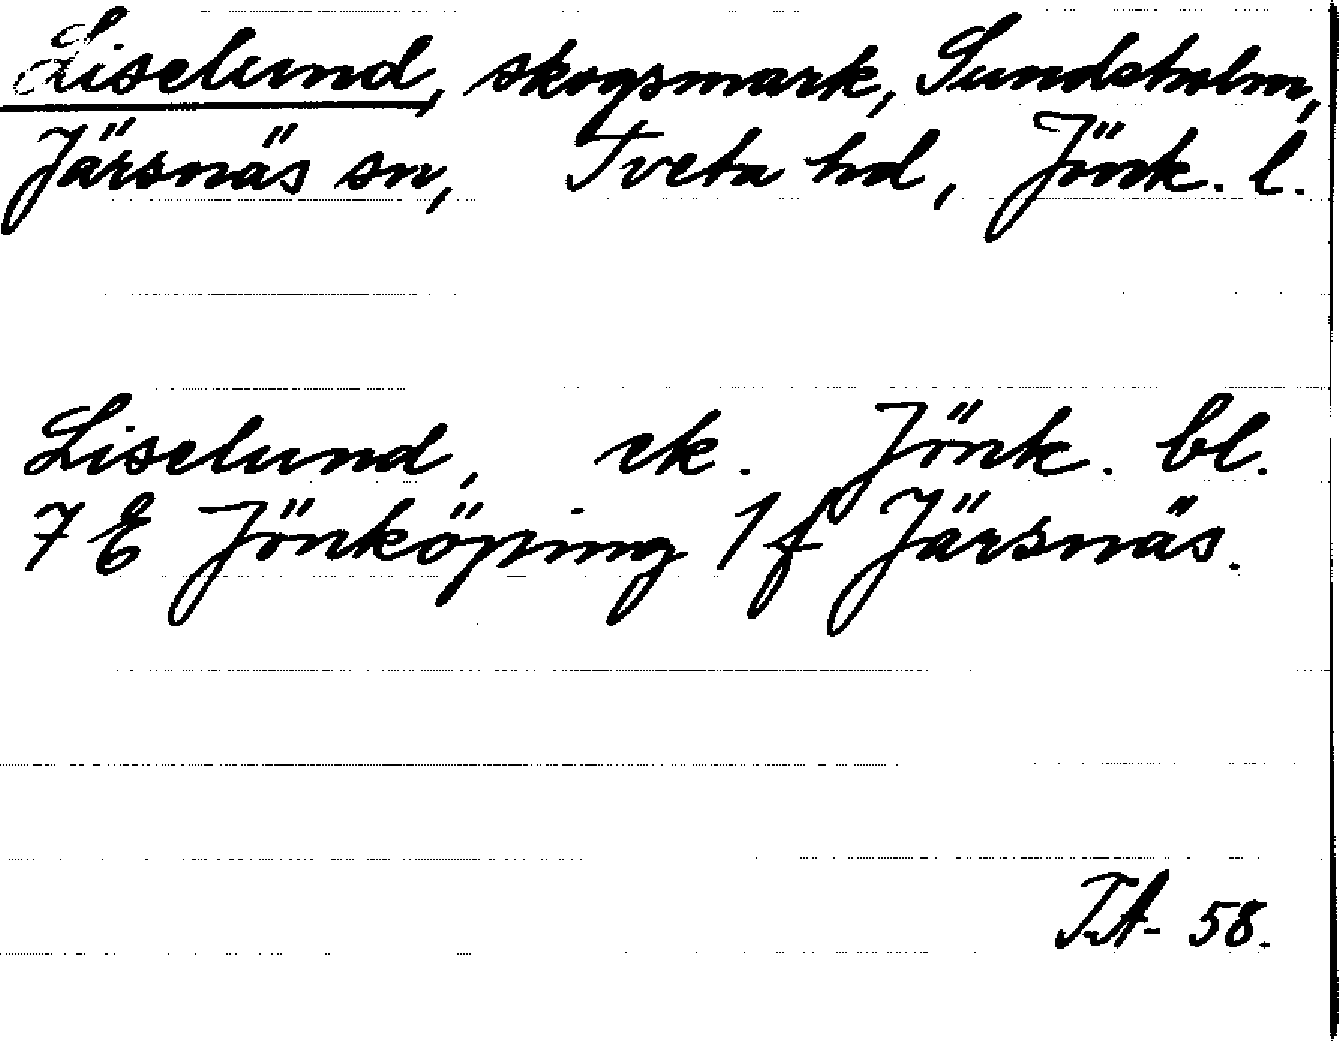 Liselund, skogsmark, Sundsholm,
Järsnäs sn, Tveta hd, Jönk. l.
Liselund, ek. Jönk. bl.
7 E Jönköping 1 f Järsnäs.
T.A- 58.